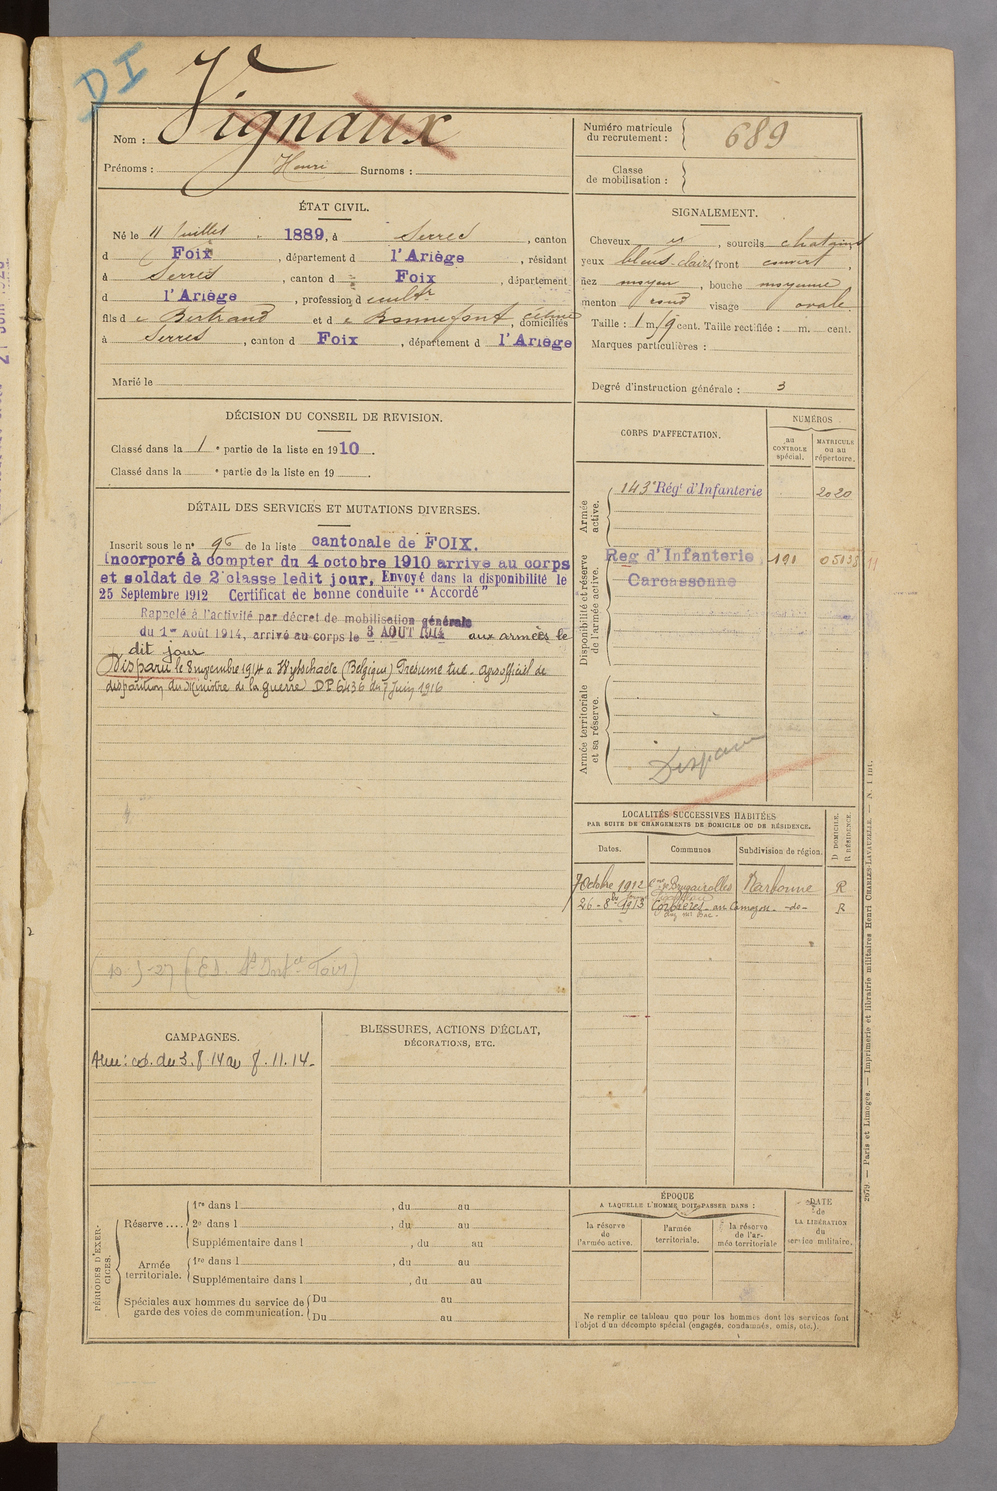 DI
Nom : Vignaux
Prénoms : Henri Surnoms :
Numéro matricule du recrutement : 689
Classe de mobilisation :
ÉTAT CIVIL.
Né le 11 Juillet 1889, à Serres, canton
d Foix, département d l'Ariège, résidant
à Serres, canton d Foix, département
d l'Ariège, profession d cultr
fils de Bertrand et de Bonnefont, céline domiciliés
à Serres, canton d Foix, département d l'Ariège
Marié le
SIGNALEMENT.
Cheveux , sourcils chatains
yeux bleus-clairs front couvert,
nez moyen, bouche moyenne
menton rond visage ovale
Taille : 1 m. cent. Taille rectifiée : m. cent.
Marques particulières :
Degré d'instruction générale : 3
DÉCISION DU CONSEIL DE REVISION.
Classé dans la 1e partie de la liste en 1910.
Classé dans la e partie de la liste en 19 .
DÉTAIL DES SERVICES ET MUTATIONS DIVERSES.
Inscrit sous le n° 96 de la liste cantonale de FOIX.
Incorporé à compter du 4 octobre 1910 arrivé au corps
et soldat de 2e classe ledit jour, Envoyé dans la disponibilité le
25 Septembre 1912 Certificat de bonne conduite "Accordé"
Rappelé à l'activité par décret de mobilisation générale
du 1er Août 1914, arrivé au corps le 3 AOUT 1914 aux armées le
dit jour
Disparu le 8 novembre 1914 à Wytschaete (Belgique) Présumé tué - Avis officiel de
disparition du Ministre de la guerre DP 6436 du 7 Juin 1916
CORPS D'AFFECTATION.
NUMÉROS
au CONTROLE spécial.
MATRICULE ou au répertoire.
Armée active.
143e Régt d'Infanterie 2020
Disponibilité et réserve de l'armée active.
Reg d'Infanterie 191 05133
Carcassonne
Armée territoriale et sa réserve.
Disparu
LOCALITÉS SUCCESSIVES HABITÉES
PAR SUITE DE CHANGEMENTS DE DOMICILE OU DE RÉSIDENCE.
Dates. Communes Subdivision de région. D DOMICILE. R RÉSIDENCE.
7 Octobre 1912 Brugairolles Narbonne R
26 - 8bre 1913 Corbières - au Camazou - do - R
CAMPAGNES.
du 3.8.14 au 8.11.14-
BLESSURES, ACTIONS D'ÉCLAT,
DÉCORATIONS, ETC.
PÉRIODES D'EXERCICES.
Réserve.... 1re dans l , du au
2e dans l , du au
Supplémentaire dans l , du au
Armée territoriale. 1re dans l , du au
Supplémentaire dans l , du au
Spéciales aux hommes du service de garde des voies de communication. Du au
Du au
ÉPOQUE
A LAQUELLE L'HOMME DOIT PASSER DANS :
la réserve de l'armée active.
l'armée territoriale.
la réserve de l'armée territoriale
DATE de LA LIBÉRATION du service militaire.
Ne remplir ce tableau que pour les hommes dont les services font
l'objet d'un décompte spécial (engagés, condamnés, omis, etc.).
2679. — Paris et Limoges. — Imprimerie et librairie militaires Henri CHARLES-LAVAUZELLE. — N. 1 int.